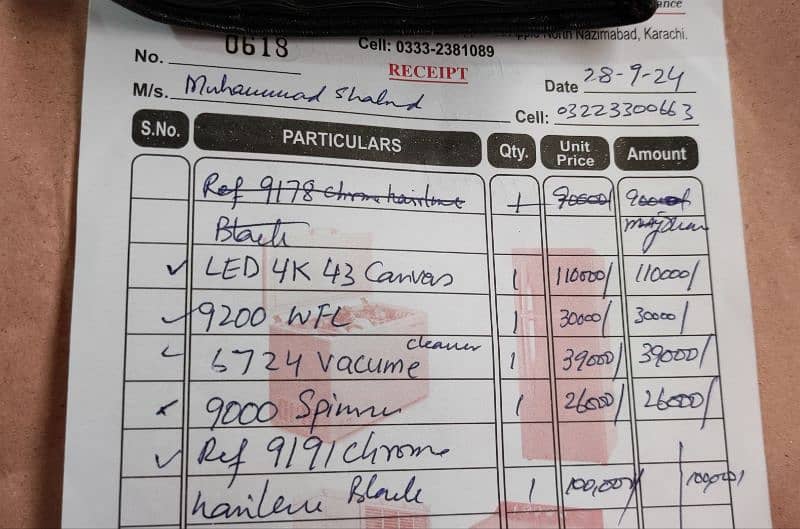 ance
North Nazimabad, Karachi.
No. 0618 Cell: 0333-2381089
RECEIPT
Date 28-9-24
M/s. Muhammad Shahid
Cell: 03223300663
S.No. PARTICULARS Qty. Unit Price Amount
Ref 9178 chrome hairline 1 90000/ 90000/
Black
✓ LED 4K 43 Canvas 1 110000/ 110000/
✓ 9200 WFL 1 30000/ 30000/
✓ 6724 Vacume cleaner 1 39000/ 39000/
9000 Spinner 1 26000/ 26000/
✓ Ref 9191 Chrome
hairline Black 1 100,000/ 100,000/